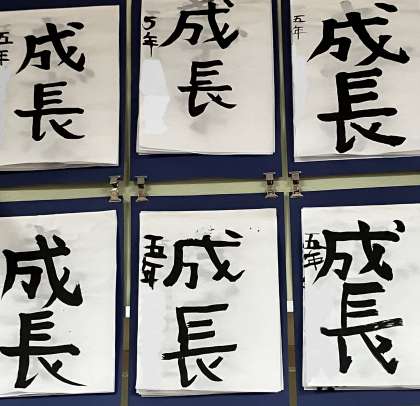 成長
五年
成長
5年
成長
五年
成長
成長
五年
成長
五年